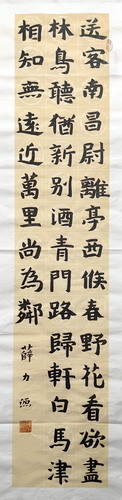 送客南昌尉離亭西候春野花看欲盡
林鳥聽猶新别酒青門路歸軒白馬津
相知無遠近萬里尚為鄰
薛力源